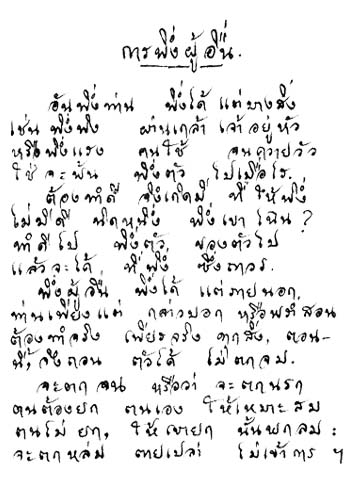 การพึ่งผู้อื่น.
อันพึ่งท่าน พึ่งได้ แต่บางสิ่ง
เช่นพึ่งพิง ผ่านเกล้า เจ้าอยู่หัว
หรือพึ่งแรง คนใช้ จนควายวัว
ใช่จะพ้น พึ่งตัว ไปเมื่อไร.
ต้องทำดี จึงเกิดมี ที่ให้พึ่ง
ไม่มีดี นิดหนึ่ง พึ่งเขาไฉน?
ทำดีไป พึ่งตัว, ของตัวไป
แล้วจะได้ ที่พึ่ง ซึ่งถาวร.
พึ่งผู้อื่น พึ่งได้ แต่ภายนอก,
ท่านเพียงแต่ กล่าวบอก หรือพร่ำสอน
ต้องทำจริง เพียรจริง ทุกสิ่ง, ตอน-
นี้, จึงถอน ตัวได้ ไม่ตกจม.
จะตกจน หรือว่า จะตกนรก
ตนต้องยก ตนเอง ให้เหมาะสม
ตนไม่ยก, ให้เขายก นั้นพกลม:
จะตกหล่ม ตายเปล่า ไม่เข้าการ ฯ